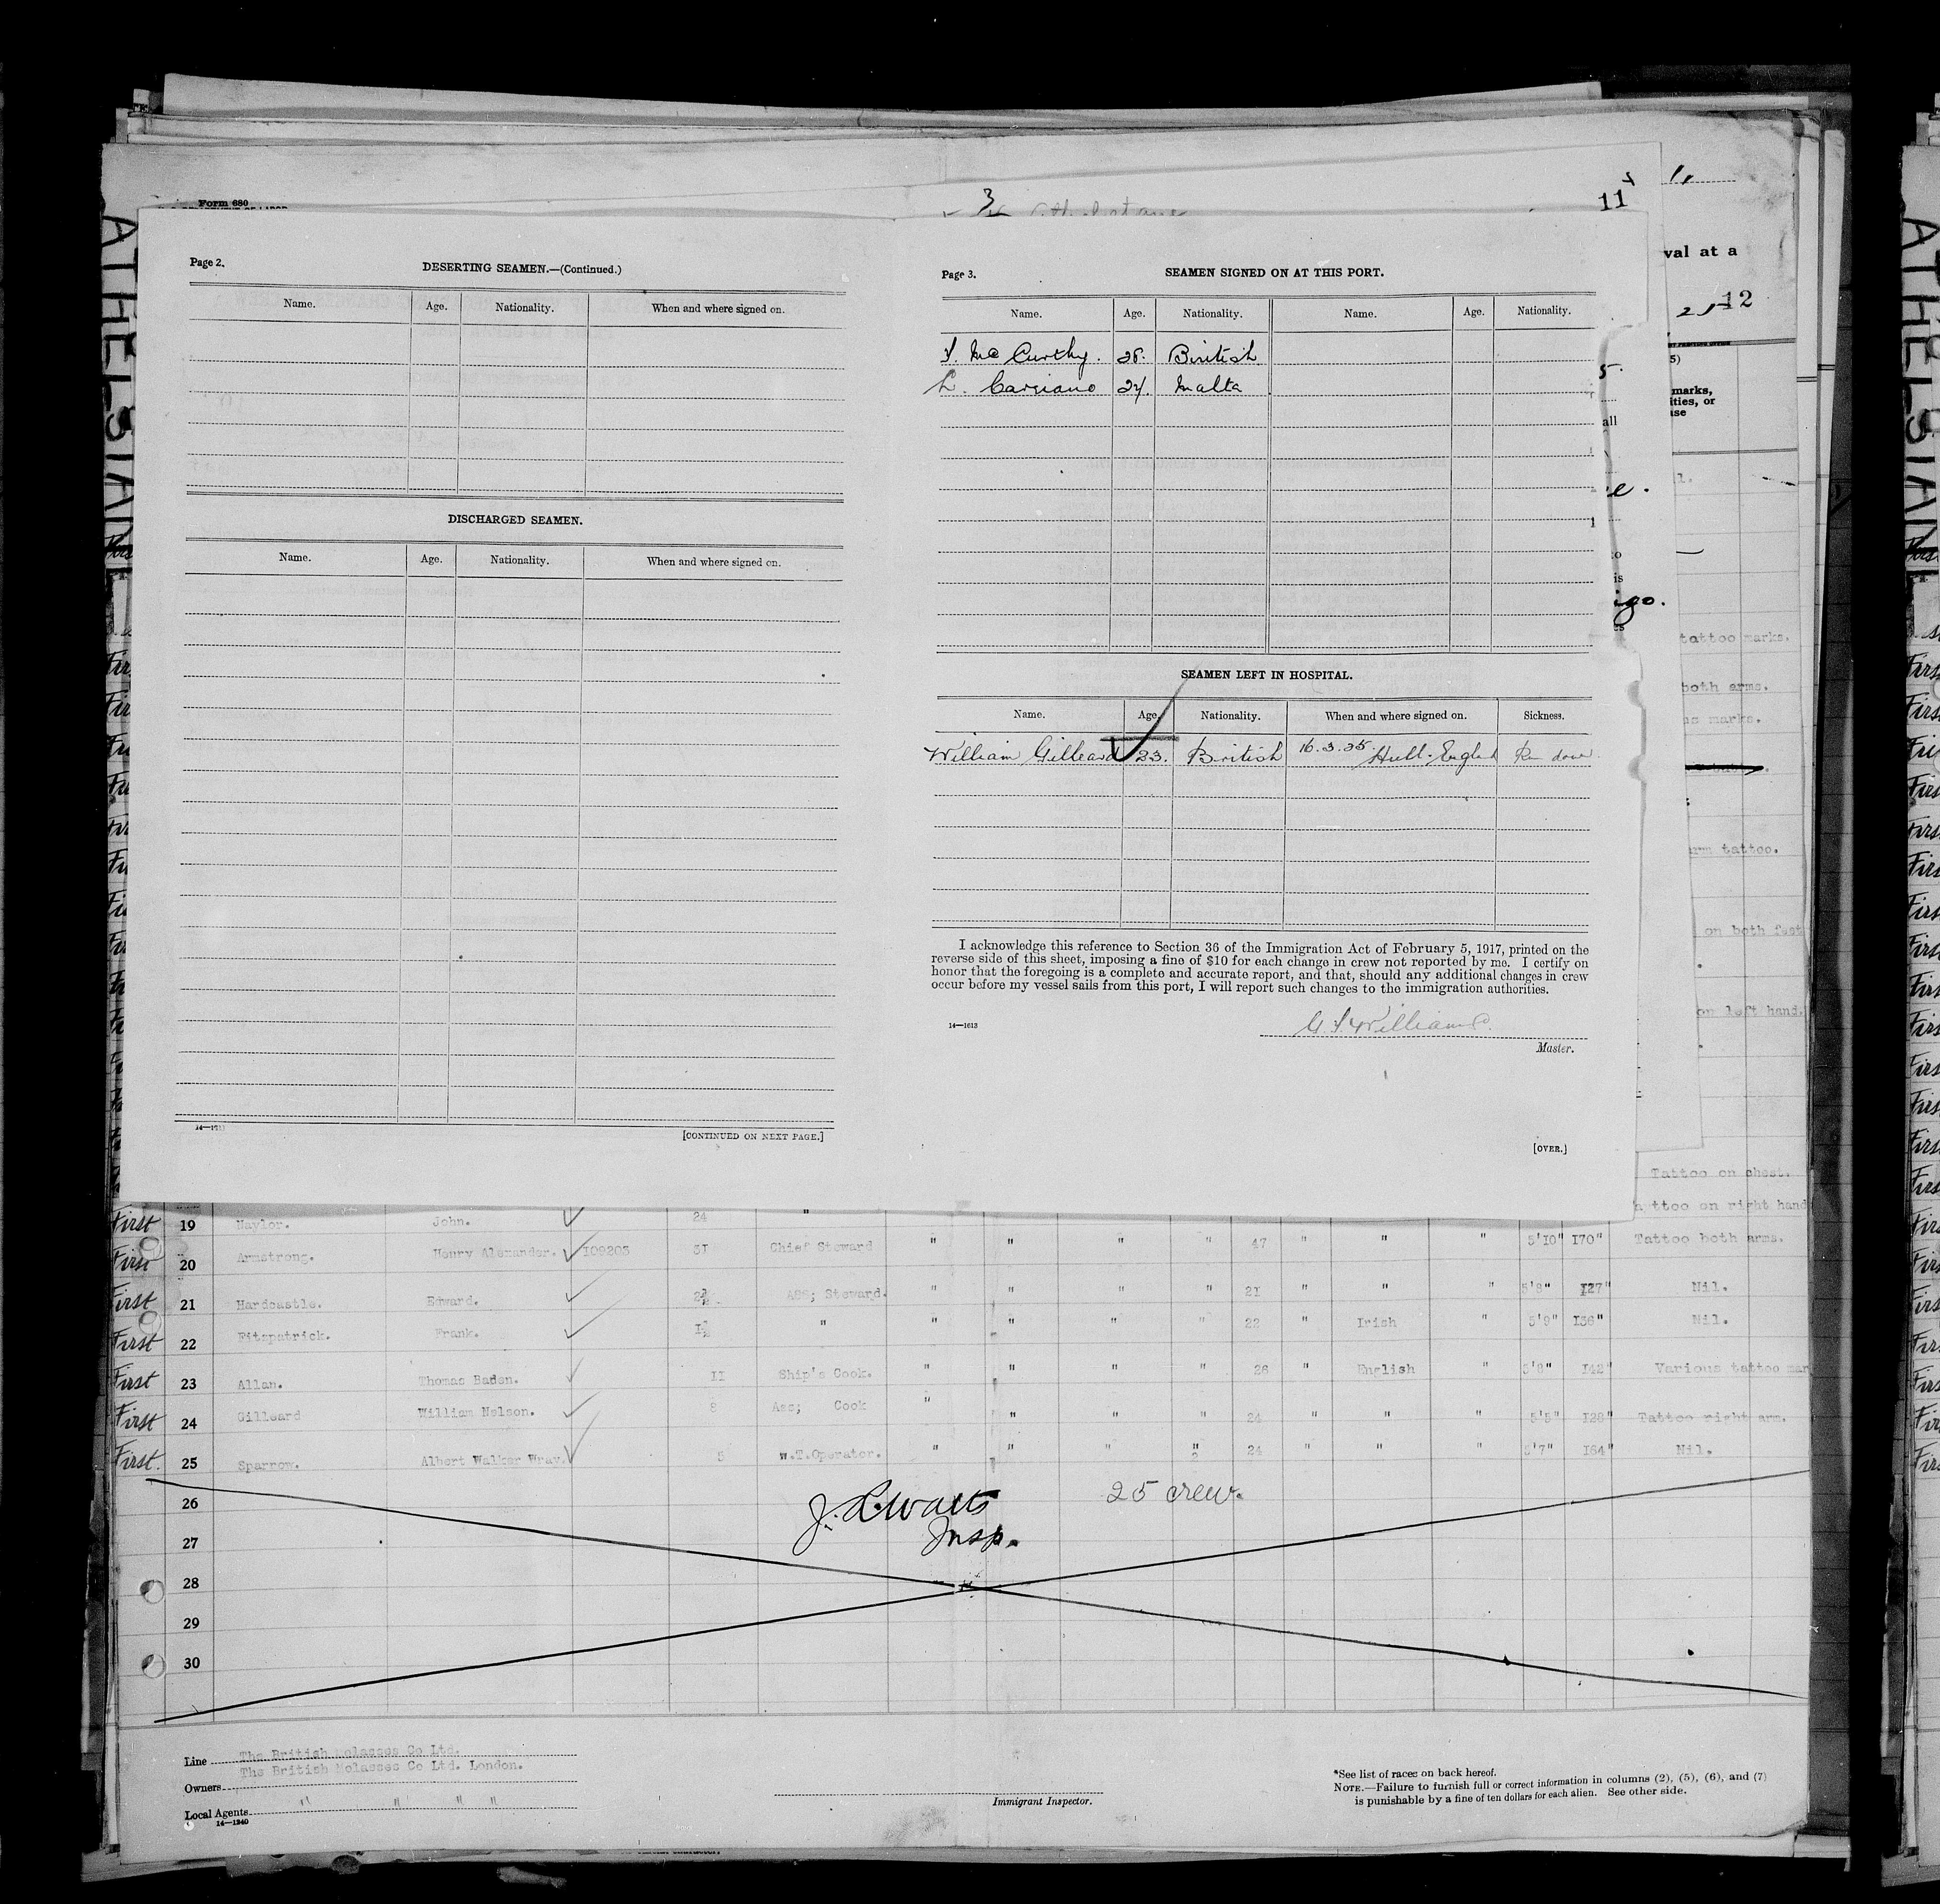 Form 680
3
11
12
val at a
ATHELSTANE
Page 2.
DESERTING SEAMEN.—(Continued.)
Name. Age. Nationality. When and where signed on.
DISCHARGED SEAMEN.
Name. Age. Nationality. When and where signed on.
14—1613
[CONTINUED ON NEXT PAGE.]
Page 3.
SEAMEN SIGNED ON AT THIS PORT.
Name. Age. Nationality. Name. Age. Nationality.
Mc Curthy. 28. British
L. 24. Malta
SEAMEN LEFT IN HOSPITAL.
Name. Age. Nationality. When and where signed on. Sickness.
William Gilleard 23. British 16.3.25 Hull. Englnd Run down
I acknowledge this reference to Section 36 of the Immigration Act of February 5, 1917, printed on the
reverse side of this sheet, imposing a fine of $10 for each change in crew not reported by me. I certify on
honor that the foregoing is a complete and accurate report, and that, should any additional changes in crew
occur before my vessel sails from this port, I will report such changes to the immigration authorities.
14—1613
Williams
Master.
[OVER.]
marks,
ities, or
tattoo marks.
both arms.
marks.
rm tattoo.
on both feet
on left hand.
Tattoo on chest.
First 19 Naylor. John. 24 " attoo on right hand
First 20 Armstrong. Henry Alexander. 109203 31 Chief Steward " " " " 47 " " " 5'10" 170" Tattoo both arms.
First 21 Hardcastle. Edward. Ass; Steward. " " " " 21 " " " 5'8" 127" Nil.
First 22 Fitzpatrick. Frank. " " " " " 22 " Irish " 5'9" 136" Nil.
First 23 Allan. Thomas Baden. 11 Ship's Cook. " " " " 26 " English " 5'8" 142" Various tattoo mar
First 24 Gilleard William Nelson. 8 Ass; Cook " " " " 24 " " " 5'5" 128" Tattoo right arm.
First. 25 Sparrow. Albert Walker Wray. 5 w.T.Operator. " " " " 24 " " " 5'7" 164" Nil.
26
J. L. Watts
Insp.
25 crew.
27
28
29
30
Line The British Molasses Co Ltd.
Owners The British Molasses Co Ltd. London.
Local Agents " " " "
14—1240
Immigrant Inspector.
*See list of races on back hereof.
NOTE.—Failure to furnish full or correct information in columns (2), (5), (6), and (7)
is punishable by a fine of ten dollars for each alien. See other side.